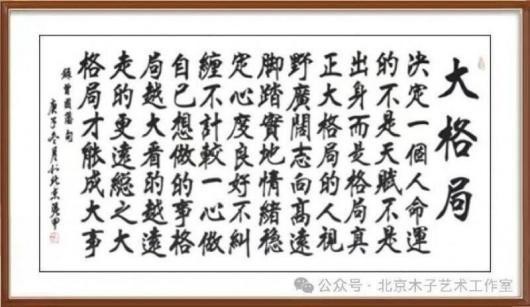 大格局
決定一個人命運
的不是天賦不是
出身而是格局真
正大格局的人視
野廣闊志向高遠
脚踏實地情緒穩
定心度良好不糾
纏不計較一心做
自己想做的事格
局越大看的越遠
走的更遠總之大
格局才能成大事
錄曾國藩句
庚子冬月於北京
公众号 · 北京木子艺术工作室